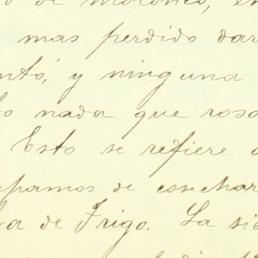 mas perdido dar
ntó, y ninguna
o nada que rosa
Esto se refiere
pamos de cosechar
a de Trigo. La si